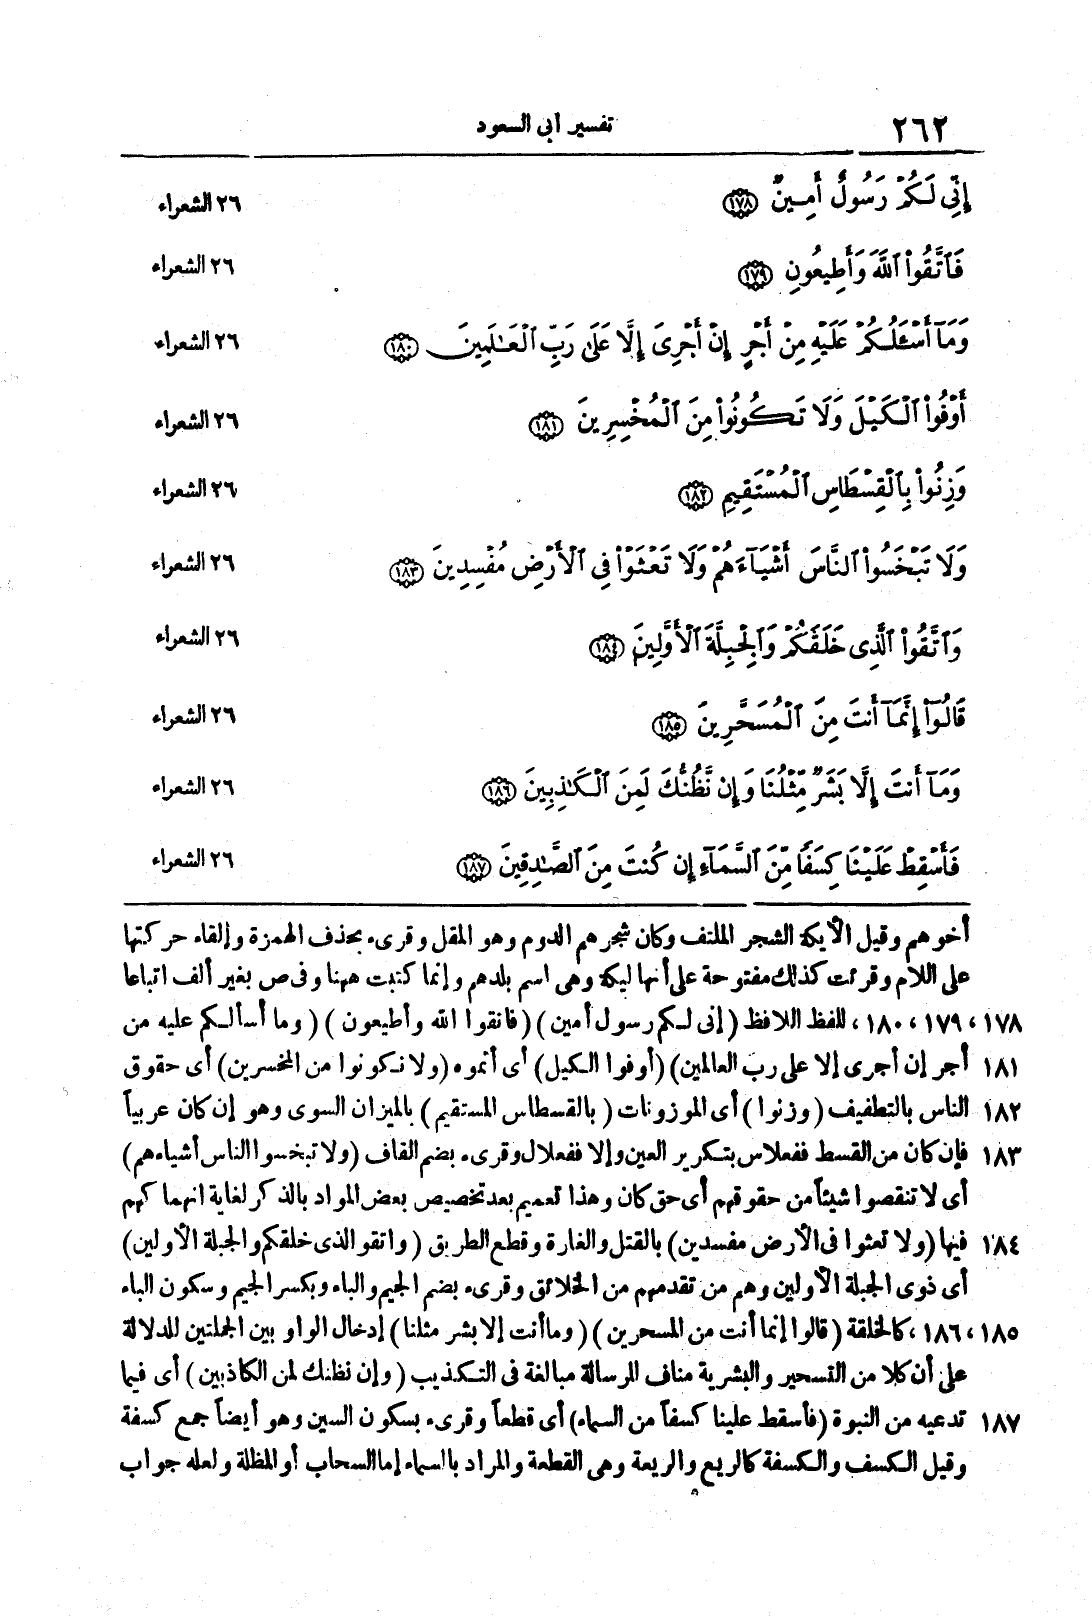 ٢٦٢ تفسير أبى السعود
إِنِّى لَكُمْ رَسُولٌ أَمِينٌ ١٧٨ ٢٦ الشعراء
فَٱتَّقُوا۟ ٱللَّهَ وَأَطِيعُونِ ١٧٩ ٢٦ الشعراء
وَمَآ أَسْـَٔلُكُمْ عَلَيْهِ مِنْ أَجْرٍ إِنْ أَجْرِىَ إِلَّا عَلَىٰ رَبِّ ٱلْعَـٰلَمِينَ ١٨٠ ٢٦ الشعراء
أَوْفُوا۟ ٱلْكَيْلَ وَلَا تَكُونُوا۟ مِنَ ٱلْمُخْسِرِينَ ١٨١ ٢٦ الشعراء
وَزِنُوا۟ بِٱلْقِسْطَاسِ ٱلْمُسْتَقِيمِ ١٨٢ ٢٦ الشعراء
وَلَا تَبْخَسُوا۟ ٱلنَّاسَ أَشْيَآءَهُمْ وَلَا تَعْثَوْا۟ فِى ٱلْأَرْضِ مُفْسِدِينَ ١٨٣ ٢٦ الشعراء
وَٱتَّقُوا۟ ٱلَّذِى خَلَقَكُمْ وَٱلْجِبِلَّةَ ٱلْأَوَّلِينَ ١٨٤ ٢٦ الشعراء
قَالُوٓا۟ إِنَّمَآ أَنتَ مِنَ ٱلْمُسَحَّرِينَ ١٨٥ ٢٦ الشعراء
وَمَآ أَنتَ إِلَّا بَشَرٌ مِّثْلُنَا وَإِن نَّظُنُّكَ لَمِنَ ٱلْكَـٰذِبِينَ ١٨٦ ٢٦ الشعراء
فَأَسْقِطْ عَلَيْنَا كِسَفًا مِّنَ ٱلسَّمَآءِ إِن كُنتَ مِنَ ٱلصَّـٰدِقِينَ ١٨٧ ٢٦ الشعراء
أخوهم وقيل الأيكة الشجر الملتف وكان شجرهم الدوم وهو المقل وقرىء بحذف الهمزة وإلقاء حركتها
على اللام وقرئت كذلك مفتوحة على أنها ليكة وهى اسم بلدهم وإنما كتبت ههنا وفى ص بغير ألف اتباعا
١٧٨ ، ١٧٩ ، ١٨٠ ، للفظ اللافظ (إنى لكم رسول أمين) (فاتقوا الله وأطيعون) (وما أسألكم عليه من
١٨١ أجر إن أجرى إلا على رب العالمين) (أوفوا الكيل) أى أتموه (ولا تكونوا من المخسرين) أى حقوق
١٨٢ الناس بالتطفيف (وزنوا) أى الموزونات (بالقسطاس المستقيم) بالميزان السوى وهو إن كان عربياً
١٨٣ فإن كان من القسط ففعلاس بتكرير العين وإلا ففعلال وقرىء بضم القاف (ولا تبخسوا الناس أشياءهم)
أى لا تنقصوا شيئاً من حقوقهم أى حق كان وهذا تعميم بعد تخصيص بعض المواد بالذكر لغاية انهما كهم
١٨٤ فيها (ولا تعثوا فى الأرض مفسدين) بالقتل والغارة وقطع الطريق (واتقو الذى خلقكم والجبلة الأولين)
أى ذوى الجبلة الأولين وهم من تقدمهم من الخلائق وقرىء بضم الجيم والباء وبكسر الجيم وسكون الباء
١٨٥ ، ١٨٦ ، كالخلقة (قالوا إنما أنت من المسحرين) (وما أنت إلا بشر مثلنا) إدخال الواو بين الجملتين للدلالة
على أن كلا من التسحير والبشرية مناف للرسالة مبالغة فى التكذيب (وإن نظنك لمن الكاذبين) أى فيما
١٨٧ تدعيه من النبوة (فأسقط علينا كسفاً من السماء) أى قطعاً وقرىء بسكون السين وهو أيضاً جمع كسفة
وقيل الكسف والكسفة كالريع والريعة وهى القطعة والمراد بالسماء إما السحاب أو المظلة ولعله جواب